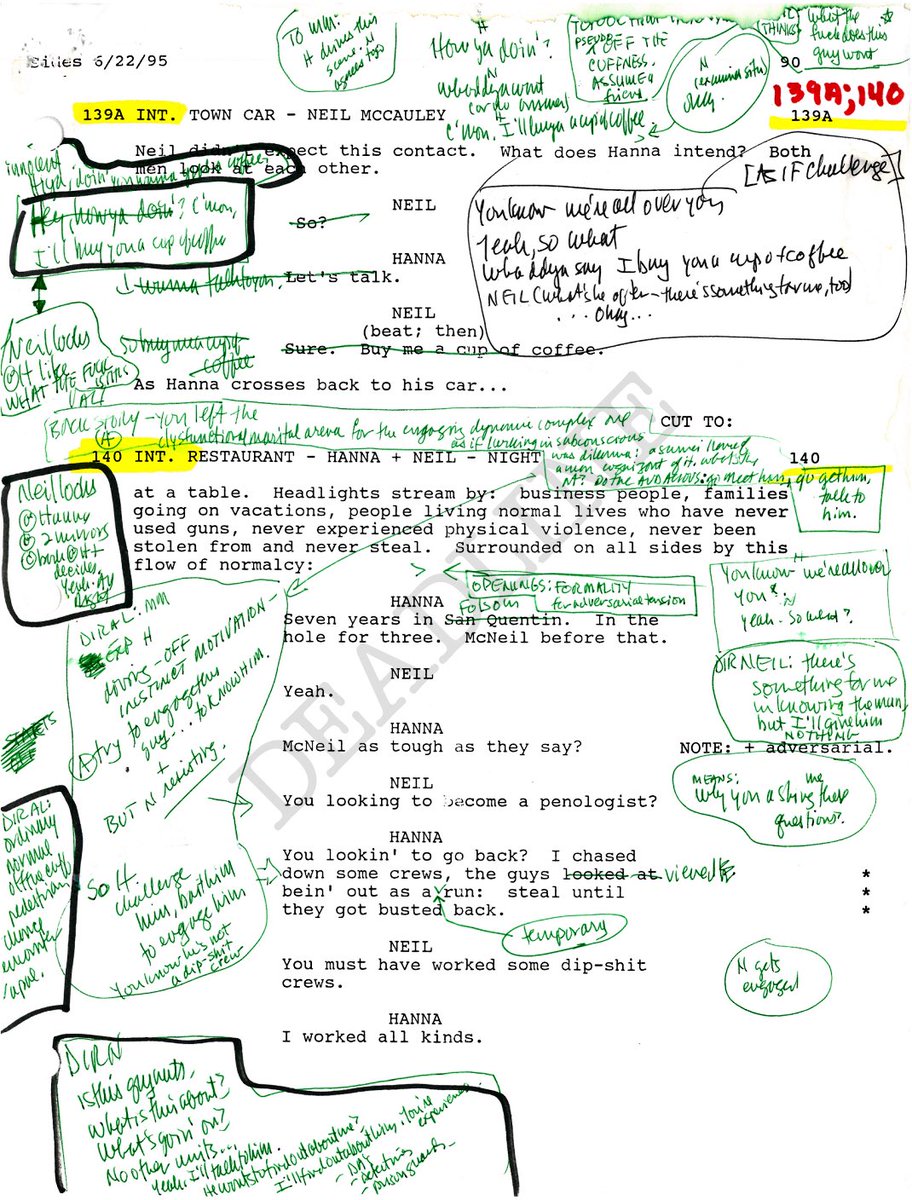 Sides 6/22/95
90
139A;140
To MM:
H drives this
scene. N
agrees to go
How ya doin'?
N
whaddya want
H
C'mon. I'll buy ya a cup of coffee.
PSEUDO
OFF THE
CUFFNESS.
ASSUME A
friend
N
(examines situ)
Okay.
THINKS:
what the
fuck does this
guy want
139A INT. TOWN CAR - NEIL MCCAULEY
139A
Neil didn't expect this contact. What does Hanna intend? Both
men look at each other.
innocent
[AS IF Challenge]
Hey, how ya doin'? C'mon,
I'll buy you a cup of coffee
You know we're all over you
Yeah, so what
Whaddya say I buy you a cup of coffee
NEIL (what's he after - there's something for me, too)
... Okay...
NEIL
So?
HANNA
I wanna talk to you, Let's talk.
NEIL
(beat; then)
Sure. Buy me a cup of coffee.
so buy me a cup of
coffee
Neil looks
@ H like
WHAT THE FUCK
IS THIS
As Hanna crosses back to his car...
BACK STORY - you left the
dysfunctional marital arena for the engaging dynamic complex one
as if lurking in subconscious
CUT TO:
140 INT. RESTAURANT - HANNA + NEIL - NIGHT
140
was dilemma: a surveilled
man cognizant of it. what's he
Do the AUDACIOUS: go meet him, go get him,
talk to
him.
Neil looks
@ Hanna
@ 2 mirrors
@ back @ H +
decides
yeah. Ay
right
at a table. Headlights stream by: business people, families
going on vacations, people living normal lives who have never
used guns, never experienced physical violence, never been
stolen from and never steal. Surrounded on all sides by this
flow of normalcy:
OPENINGS: FORMALITY
for adversarial tension
You know we're all over
you.
N
yeah. So what?
DIR AL: MM
EXP H
driving - OFF
INSTINCT MOTIVATION -
to engage this
guy... to know him.
A try
+
BUT N resisting.
HANNA
FOLSOM
Seven years in San Quentin. In the
hole for three. McNeil before that.
NEIL
Yeah.
DIR NEIL: there's
something for me
in knowing the man,
but I'll give him
NOTHING
HANNA
McNeil as tough as they say?
NOTE: + adversarial.
NEIL
You looking to become a penologist?
MEANS:
Why you asking me these
questions?
STARTS
DIR AL:
ordinary
normal
off the cuff
pedestrian
chance
encounter
So H
challenge
him, bait him
to engage him
You know he's not
a dip-shit
crew
HANNA
You lookin' to go back? I chased
down some crews, the guys looked at viewed *
bein' out as a run: steal until *
they got busted back. *
temporary
NEIL
You must have worked some dip-shit
crews.
N gets
engaged
HANNA
I worked all kinds.
DIR N
Is this guy nuts,
What is this about?
What's goin' on?
No other units...
Yeah. I'll talk to him.
He wants to find out about me?
I'll find out about him. You're
experience.
- DAs
- detectives
- prison guards -
DEADLINE